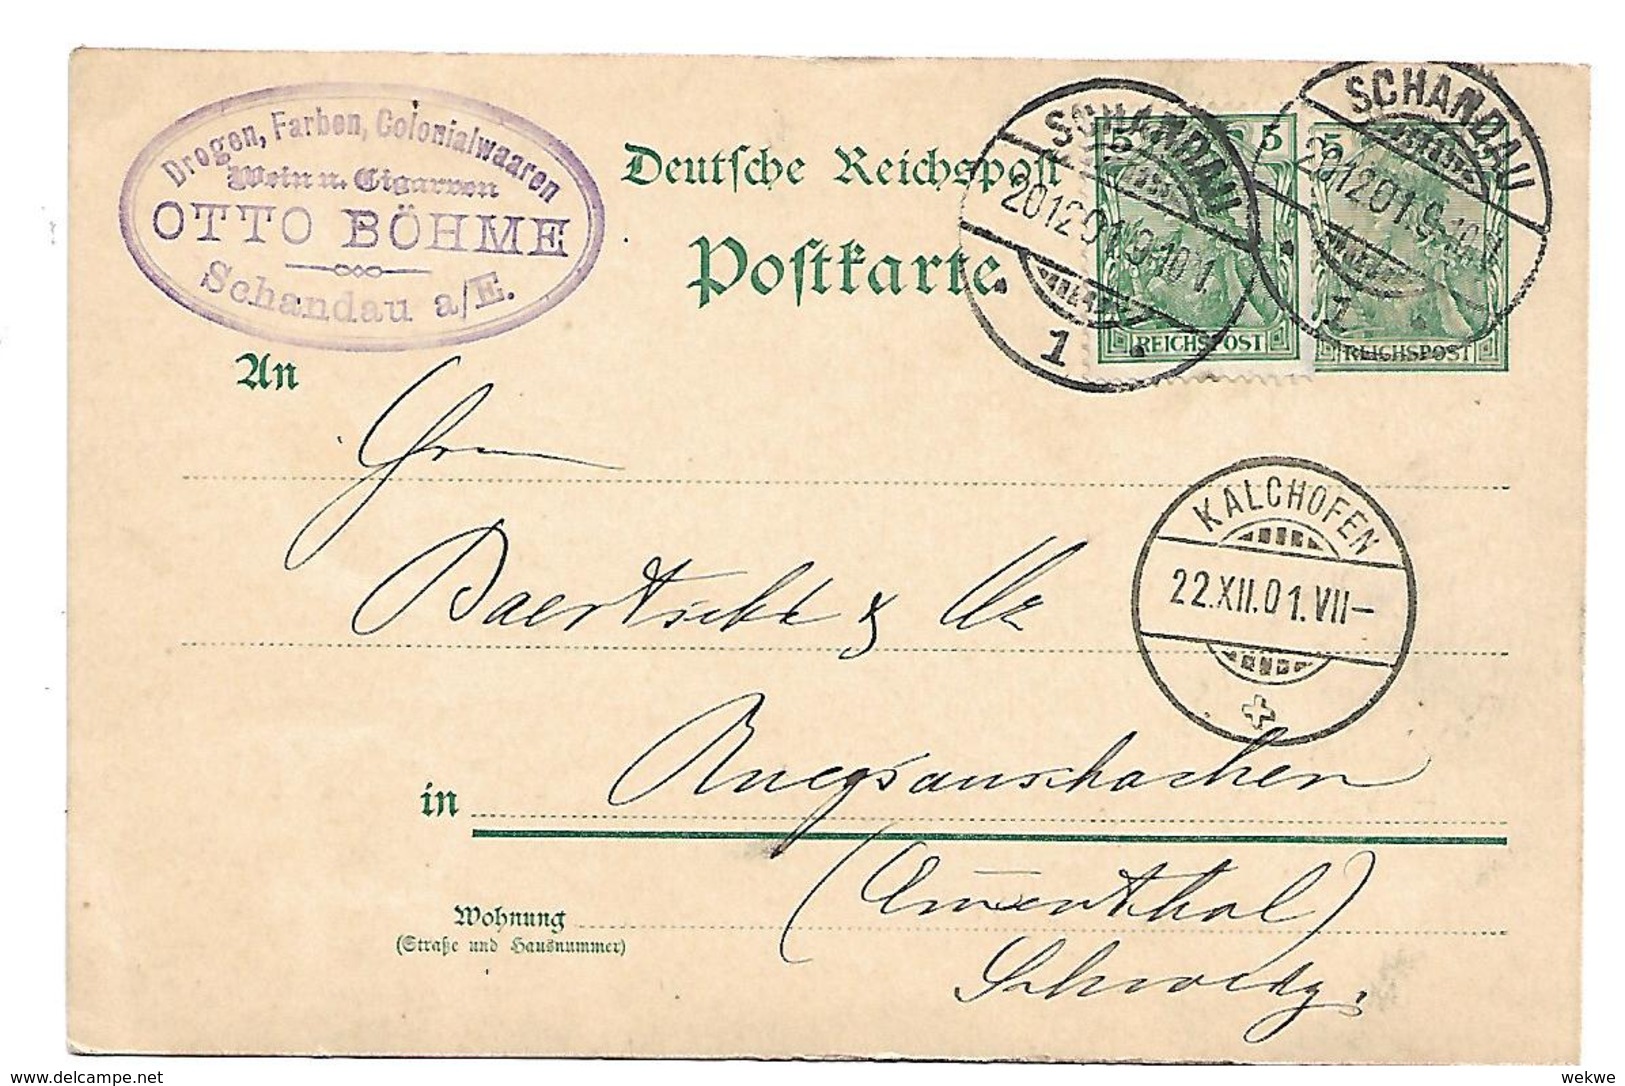 Drogen, Farben, Colonialwaaren
Wein u. Cigarren
OTTO BÖHME
Schandau a/E.
Deutsche Reichspost
Postkarte
5
REICHSPOST
5
REICHSPOST
SCHANDAU
20 12 01. 9-10 V.
1
SCHANDAU
20 12 01. 9-10 V.
1
An
KALCHOFEN
22.XII.01.VII-
in
(Emmenthal)
Schweiz.
Wohnung
(Straße und Hausnummer)
wekwe